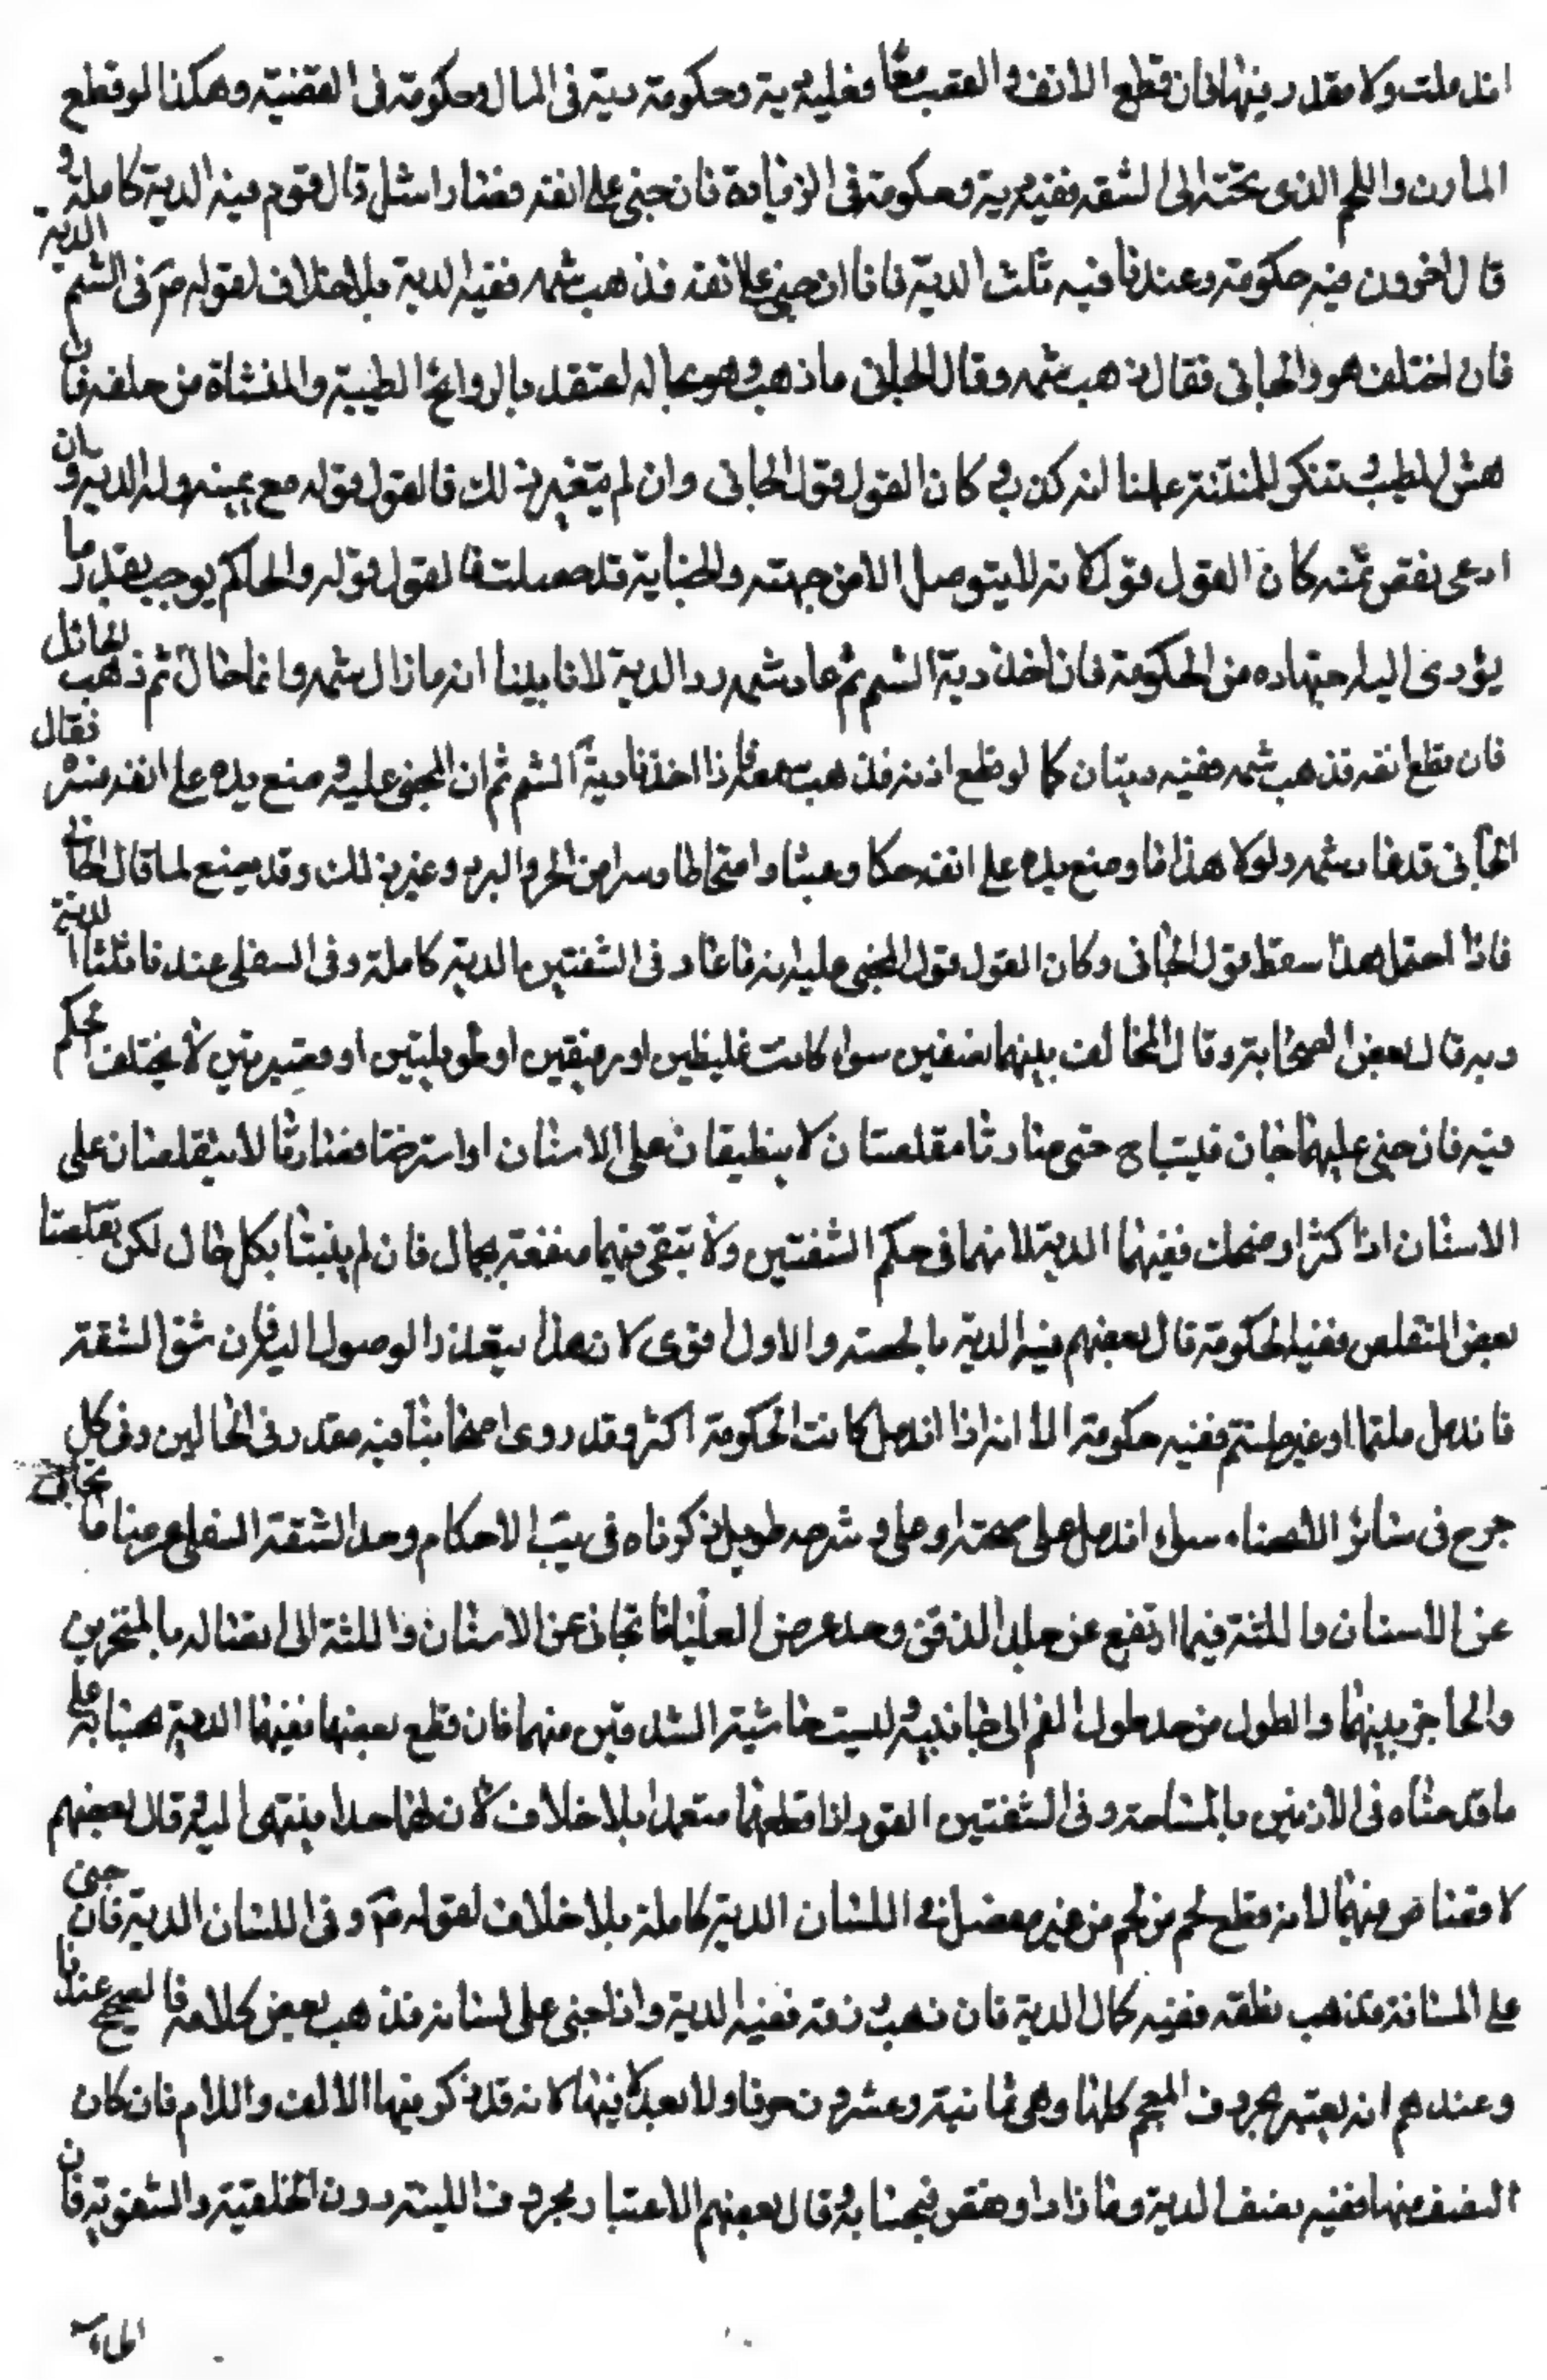 اندملت ولا مقدر فيها فان قطع الانف والقصبة معا فعليه دية وحكومة دية فى المال وحكومة فى القصبة وهكذا لو قطع
المارن واللحم الذى تحته الى الشفة ففيه دية وحكومة فى الزيادة فان جنى على انفه فصار اشل قال قوم فيه الدية كاملة و
قال اخرون فيه حكومة وعندنا فيه ثلث الدية فاما ان جنى على انفه فذهب شمه ففيه الدية بلا خلاف لقوله ع فى الشم الدية
فان اختلف هو والجانى فقال ذهب شمه وقال الجانى ما ذهب وهو بحاله اعتقد بالروائح الطيبة والمنشاة من خلفه فان
هش للطيب وتنكر للمنتنة علمنا انه كذب و كان القول قول الجانى وان لم يتغير بذلك فالقول قوله مع يمينه وله الدية وان
ادعى نقص شمه كان القول قوله لانه لا يتوصل الا من جهته والجناية قد حصلت فالقول قوله والحاكم يوجب بقدر ما
يؤدى اليه اجتهاده من الحكومة فان اخذ دية الشم ثم عاد شمه رد الدية لانا بينا انه ما زال شمه وانما حال ثم ذهب الحائل
فان قطع انفه فذهب شمه ففيه ديتان كما لو قطع اذنه فذهب سمعه فاذا اخذنا دية الشم ثم ان المجنى عليه وضع يده على انفه فقال
الجانى قد عاد شمه ولولا هذا ما وضع يده على انفه حكا وعبثا وامتخاطا وسترا من الحر والبرد وغير ذلك وقد يصنع لما قال الجانى
فاذا احتمل هذا سقط قول الجانى وكان القول قول المجنى عليه انه ما عاد وفى الشفتين الدية كاملة وفى السفلى عندنا ثلثا الدية
وبه قال بعض الصحابة وقال المخالف بينهما نصفين سواء كانت غليظين او رقيقين او طويلتين او قصيرتين لا يختلف الحكم
فيه فان جنى عليهما جان فيبستا حتى صارتا مقلصتان لا ينطبقان على الاسنان او استرختا فصارتا لا ينقلصان على
الاسنان اذا كشر او ضحك ففيهما الدية لانهما فى حكم الشفتين ولا تبقى فيهما منفعة بحال فان لم ييبسا بكل حال لكن تقلصتا
بعض التقلص ففيه الحكومة قال بعضهم فيه الدية بالحصة والاول اقوى لان هذا يتعذر الوصول اليه فان شق الشفة
فاندمل ملتئما او غير ملتئم ففيه حكومة الا انه اذا اندمل كانت الحكومة اكثر وقد روى اصحابنا فيه مقدر فى الحالين وفى كل
جرح فى سائر الاعضاء سواء اندمل على صحة او على وشرحه طويل ذكرناه فى الاحكام وحد الشفة السفلى عرضا ما تجافى
عن الاسنان واللثة فيما ارتفع عن جلد الذقن وحد عرض العليا ما تجافى عن الاسنان واللثة الى اتصاله بالمنخرين
والحاجز بينهما والطول من حد طول الفم الى جانبيه وليست حاشية الشدقين منهما فان قطع بعضها ففيها الدية بحسابه على
ما قدمناه فى الاذنين بالمساحة وفى الشفتين القود اذا قطعهما متعمدا بلا خلاف لان لهما حدا ينتهى اليه وقال بعضهم
لا قصاص فيهما لانه قطع لحم من لحم من غير مفصل فى اللسان الدية كاملة بلا خلاف لقوله ع وفى اللسان الدية فان جنى
على لسانه فذهب نطقه ففيه كمال الدية فان ذهب ذوقه ففيه الدية واذا جنى على لسانه فذهب بعض كلامه فالصحيح عندنا
وعندهم انه يعتبر بحروف المعجم كلها وهى ثمانية وعشرون حرفا ولا يعد لا فيها لانه قد ذكر فيها الالف واللام فان كان
النصف منها ففيه نصف الدية وما زاد او نقص فبحسابه وقال بعضهم الاعتبار بحروف اللسنة دون الحلقية والشفوية فان